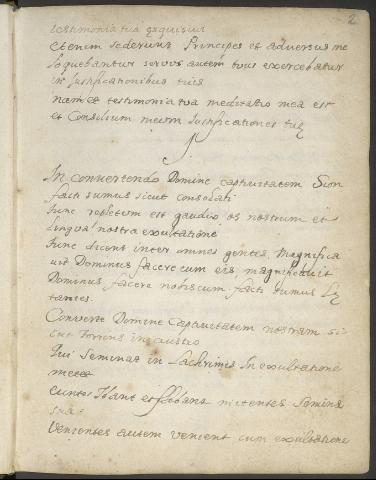 2
testimonia tua exquisivi
etenim sederunt Principes et adversus me
loquebantur servus autem tuus exercebatur
in Justificationibus tuis
nam et testimonia tua meditatio mea est
et Consilium meum Justificationes tuę
In convertendo Domine captivitatem Sion
facti sumus sicut consolati
tunc repletum est gaudio os nostrum et
lingua nostra exultatione
tunc dicent inter omnes gentes, magnifica
vit Dominus facere cum eis magnificavit
Dominus facere nobiscum facti sumus Lę
tantes
Converte Domine Captivitatem nostram si
cut torrens in austro
Qui Seminat in Lachrimis In exultatione
metet
euntes Ibant et flebant mitentes Semina
sua
Venientes autem venient cum exultatione